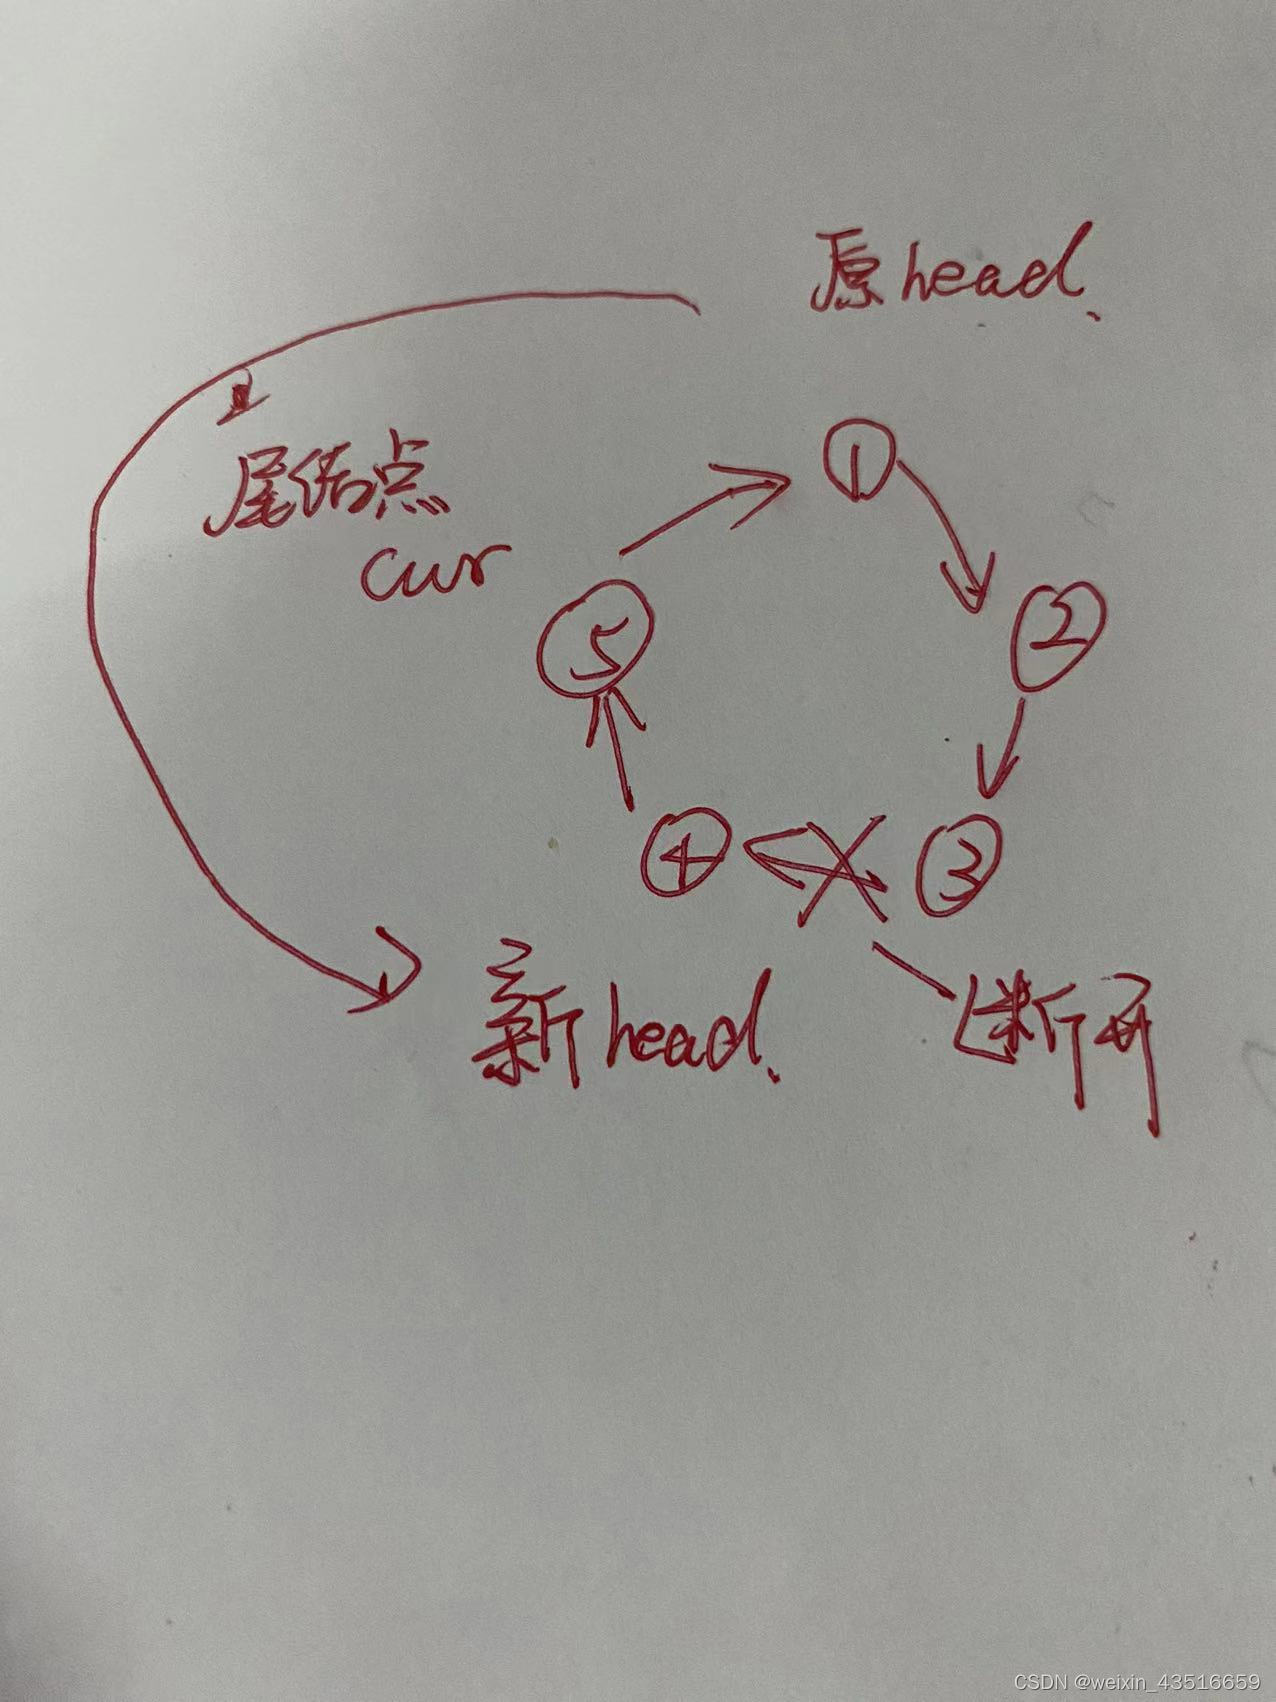 原head.
尾结点
cur
①
②
⑤
④
③
新head.
断开
CSDN @weixin_43516659